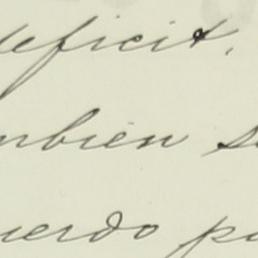 deficit,
mbien s
uerdo pa